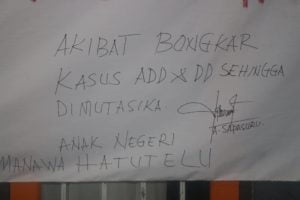 AKIBAT BONGKAR
KASUS ADD & DD SEHINGGA
DIMUTASIKA
A. SAPASURU.
ANAK NEGERI
MANAWA HATUTELU